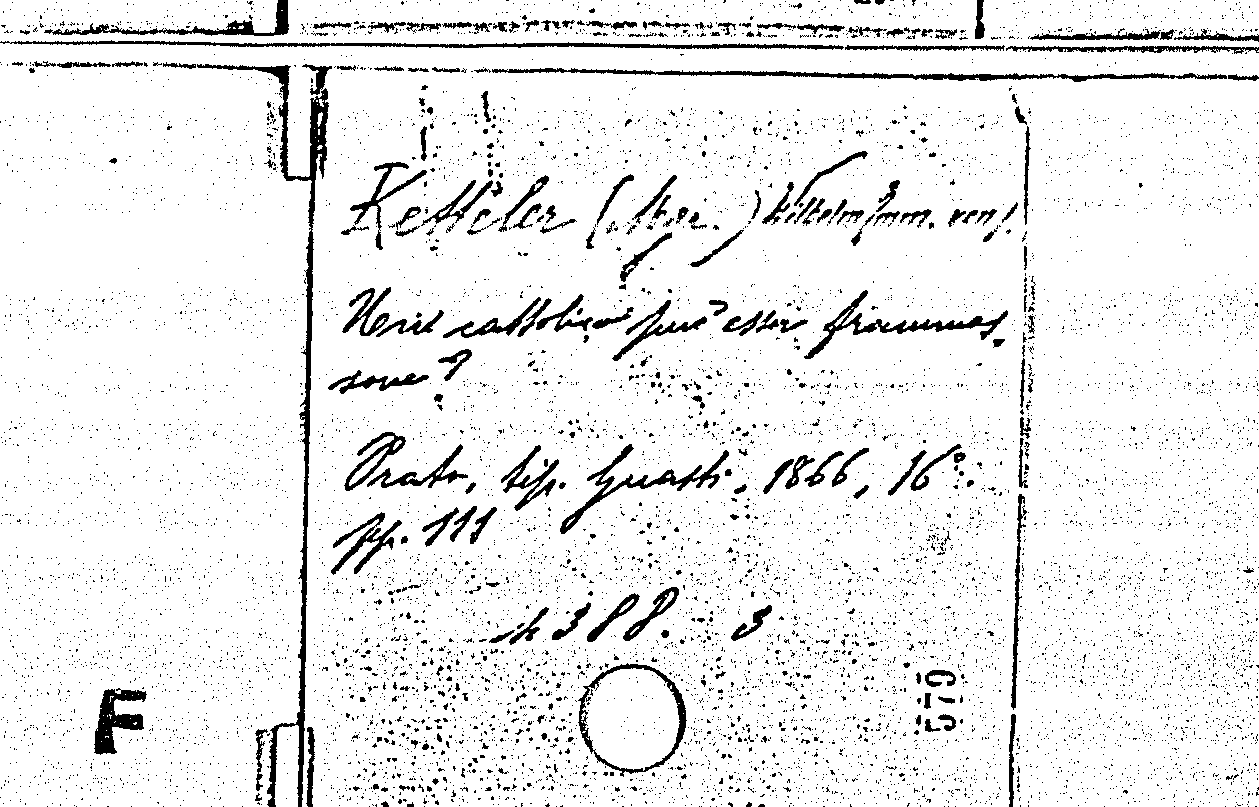 Ketteler (Mor.) Wilhelm Imm. von/.
cattolico può esser frammas,
sone?
Prato, tip. Guasti, 1866, 16°.
pp. 111
388. 3
579
F